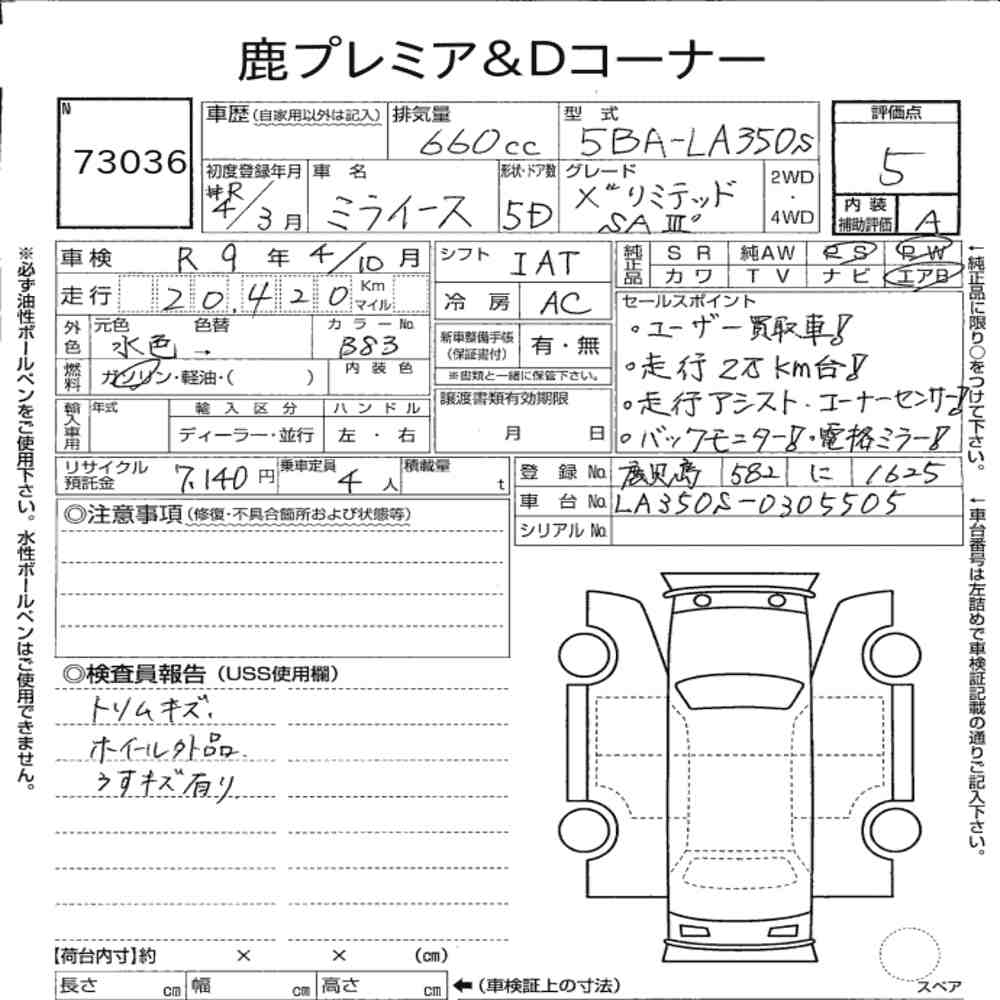 鹿プレミア&Dコーナー
N
73036
車歴 (自家用以外は記入)
排気量
660cc
型式
5BA-LA350S
評価点
5
初度登録年月
R
4/3月
車名
ミライース
形状・ドア数
5D
グレード
X"リミテッド
SAⅢ"
2WD
・
4WD
内装
補助評価
A
車検 R9年4/10月
シフト IAT
純正品 SR 純AW PS PW
カワ TV ナビ エアB
走行 20,420 Km
マイル
冷房 AC
セールスポイント
。ユーザー買取車!
。走行2万km台!
。走行アシスト.コーナーセンサー!
。バックモニター!・電格ミラー!
外色 元色 水色 → 色替
カラーNo. B83
新車整備手帳
(保証書付)
有・無
※書類と一緒に保管下さい。
燃料 ガソリン・軽油・( )
内装色
譲渡書類有効期限
月 日
輸入車用 年式
輸入区分
ハンドル
ディーラー・並行
左・右
リサイクル
預託金
7,140円
乗車定員 4人
積載量 t
登録No. 鹿児島 582 に 1625
車台No. LA350S-0305505
シリアルNo.
◎注意事項 (修復・不具合箇所および状態等)
◎検査員報告 (USS使用欄)
トリムキズ.
ホイール外品.
うすキズ有り
【荷台内寸】約 × × (cm)
長さ cm 幅 cm 高さ cm ←(車検証上の寸法)
スペア
※必ず油性ボールペンをご使用下さい。水性ボールペンはご使用できません。
←純正品に限り○をつけて下さい。
←車台番号は左詰めで車検証記載の通りご記入下さい。